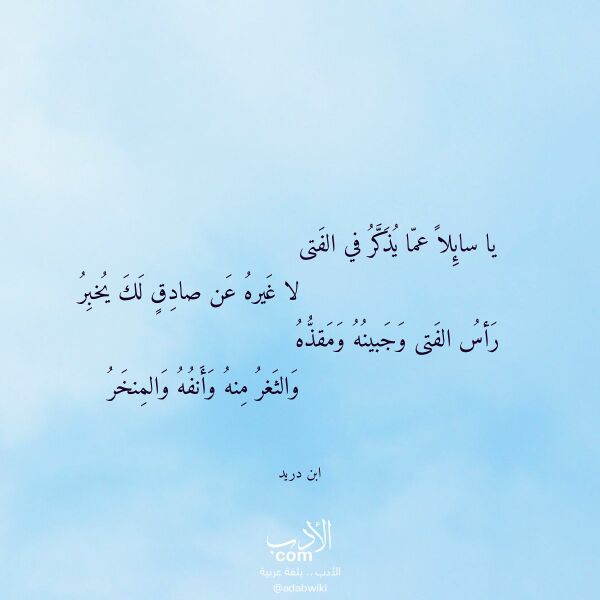 يا سايِلاً عمّا يُذَكَّرُ في الفَتى
لا غَيرهُ عَن صادِقٍ لَكَ يُخبِرُ
رَأسُ الفَتى وَجَبينُهُ وَمَقذُّهُ
وَالثَغرُ مِنهُ وَأَنفُهُ وَالمِنخَرُ
ابن دريد
الأدب
.com
الأدب .. بلغة عربية
@adabwiki